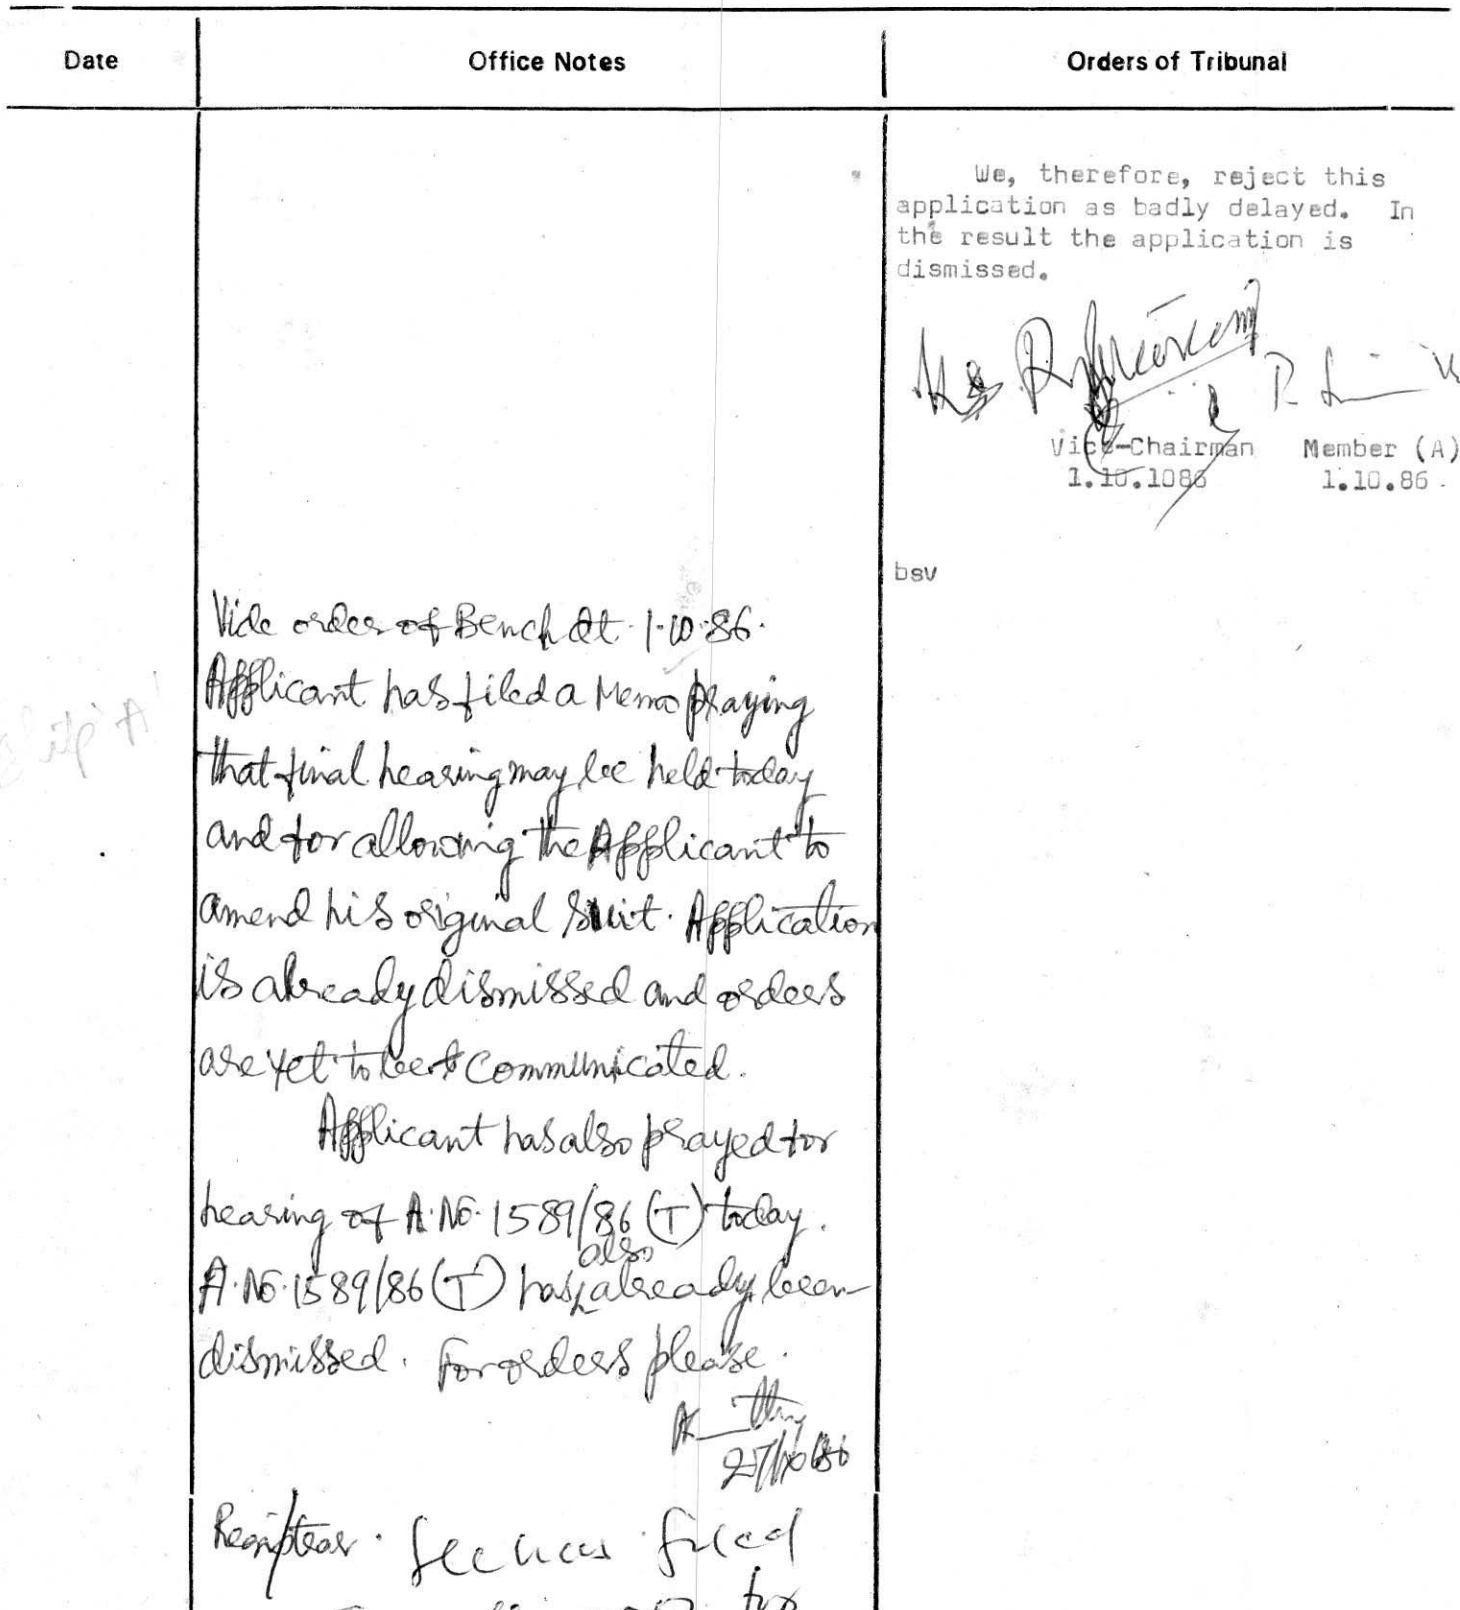 Date Office Notes Orders of Tribunal
We, therefore, reject this
application as badly delayed. In
the result the application is
dismissed.
Vice-Chairman Member (A)
1.10.1086 1.10.86.
bsv
Vide order of Bench dt. 1.10.86.
Applicant has filed a Memo praying
that final hearing may be held today
and for allowing the Applicant to
amend his original Suit. Application
is already dismissed and orders
are yet to be communicated.
Applicant has also prayed for
hearing of A.No. 1589/86 (T) today.
A.No. 1589/86 (T) has also already been
dismissed. For orders please.
27/10/86
Registrar. filed